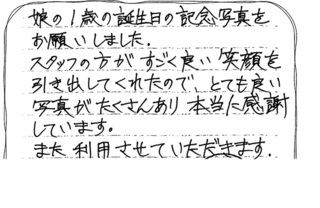 娘の1歳の誕生日の記念写真を
お願いしました.
スタッフの方が すごく良い 笑顔を
引き出してくれたので、とても良い
写真がたくさんあり 本当に感謝
しています.
また 利用させていただきます.